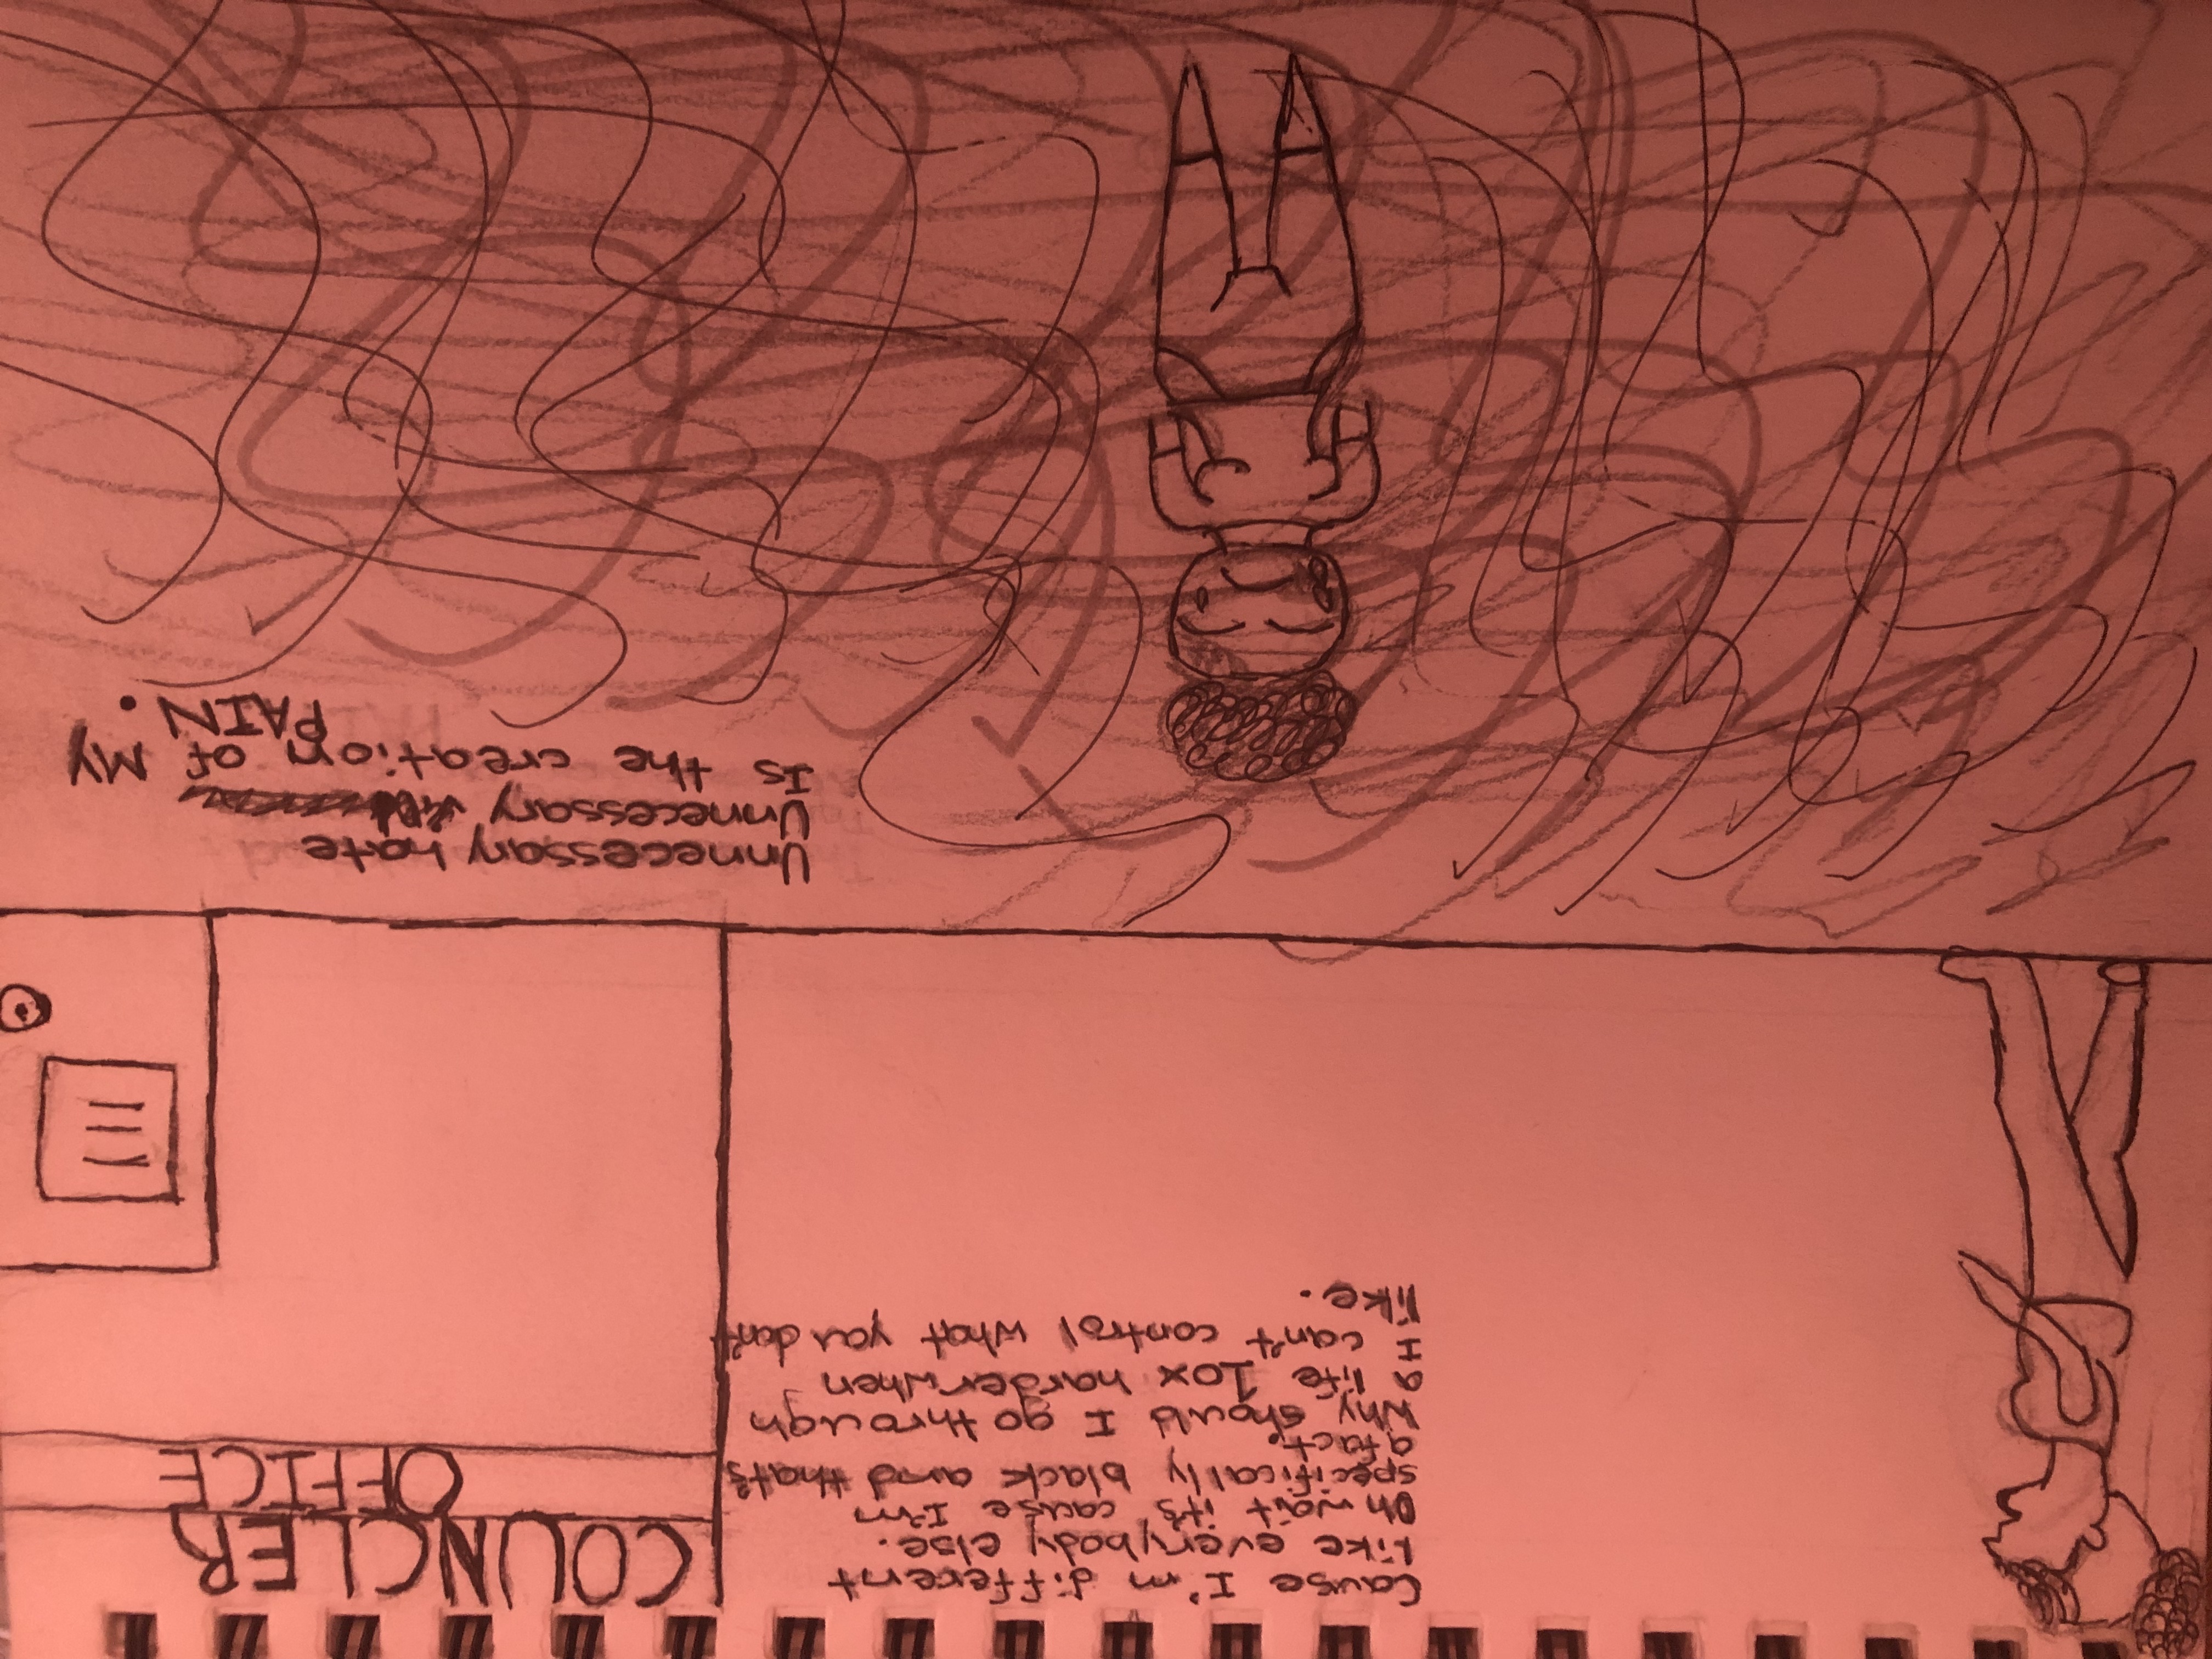 Cause I'm different
Like everybody else.
Oh wait it's cause I'm
specifically black and that's
a fact.
Why should I go through
a life 10x harder when
I can't control what you don't
like.
COUNCLER
OFFICE
Unnecessary hate
Unnecessary
Is the creation of My
PAIN.